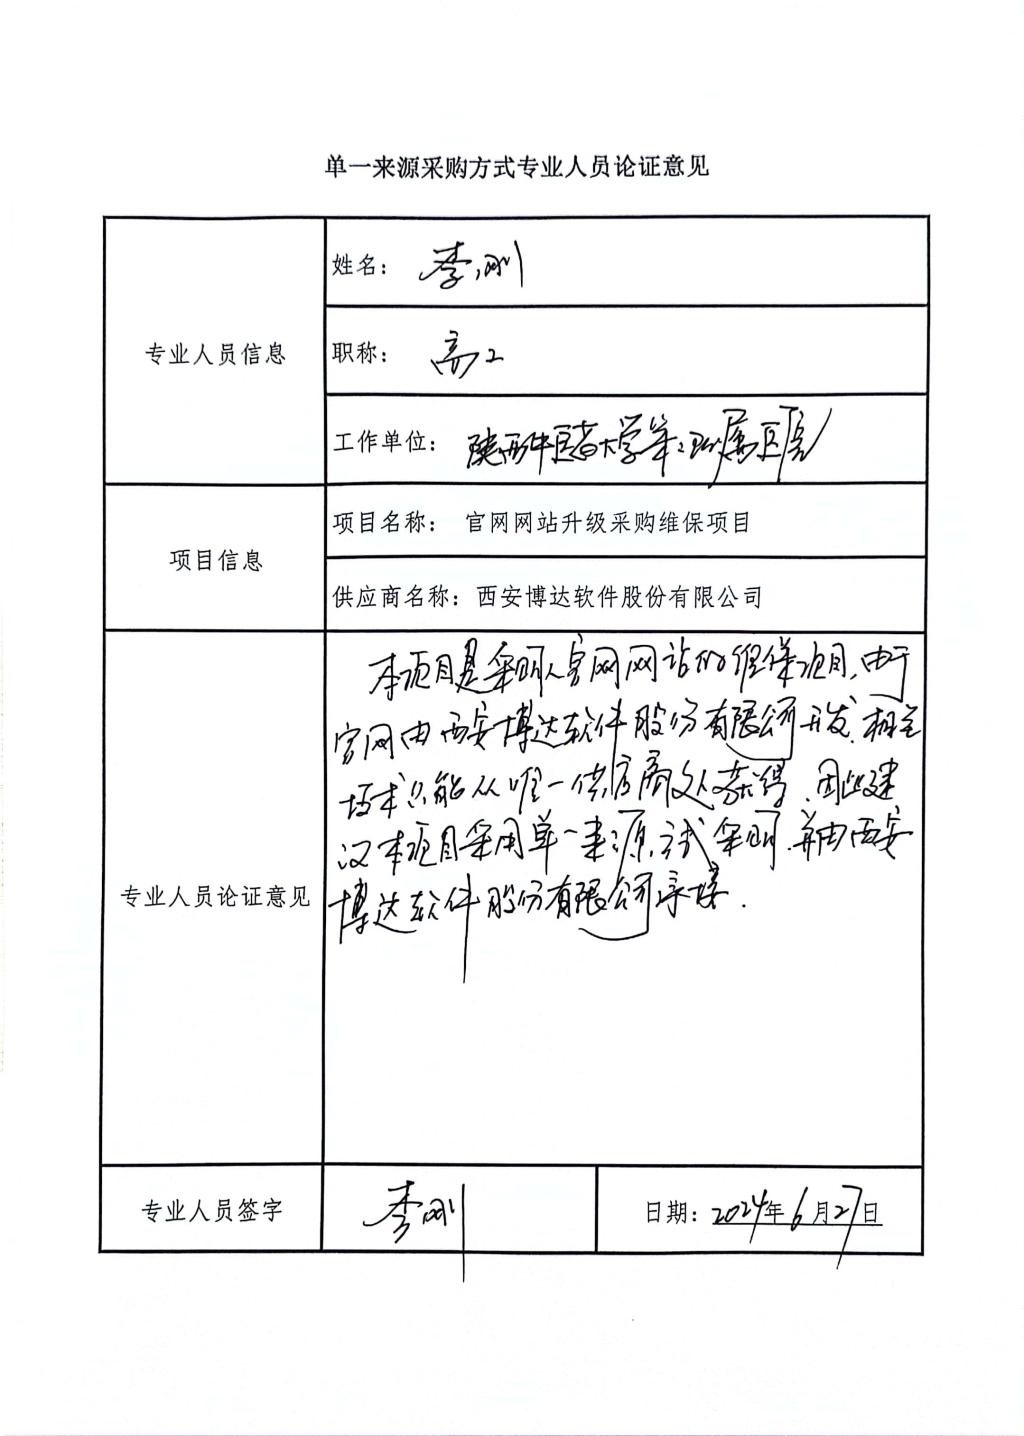 单一来源采购方式专业人员论证意见
专业人员信息
姓名： 李刚
职称： 高工
工作单位： 陕西中医药大学第二附属医院
项目信息
项目名称： 官网网站升级采购维保项目
供应商名称：西安博达软件股份有限公司
专业人员论证意见
本项目是采购人官网网站的维保项目，由于
官网由西安博达软件股份有限公司开发，相关
技术只能从唯一供应商处获得，因此建
议本项目采用单一来源方式采购，并由西安
博达软件股份有限公司承接．
专业人员签字
李刚
日期：2024年6月27日